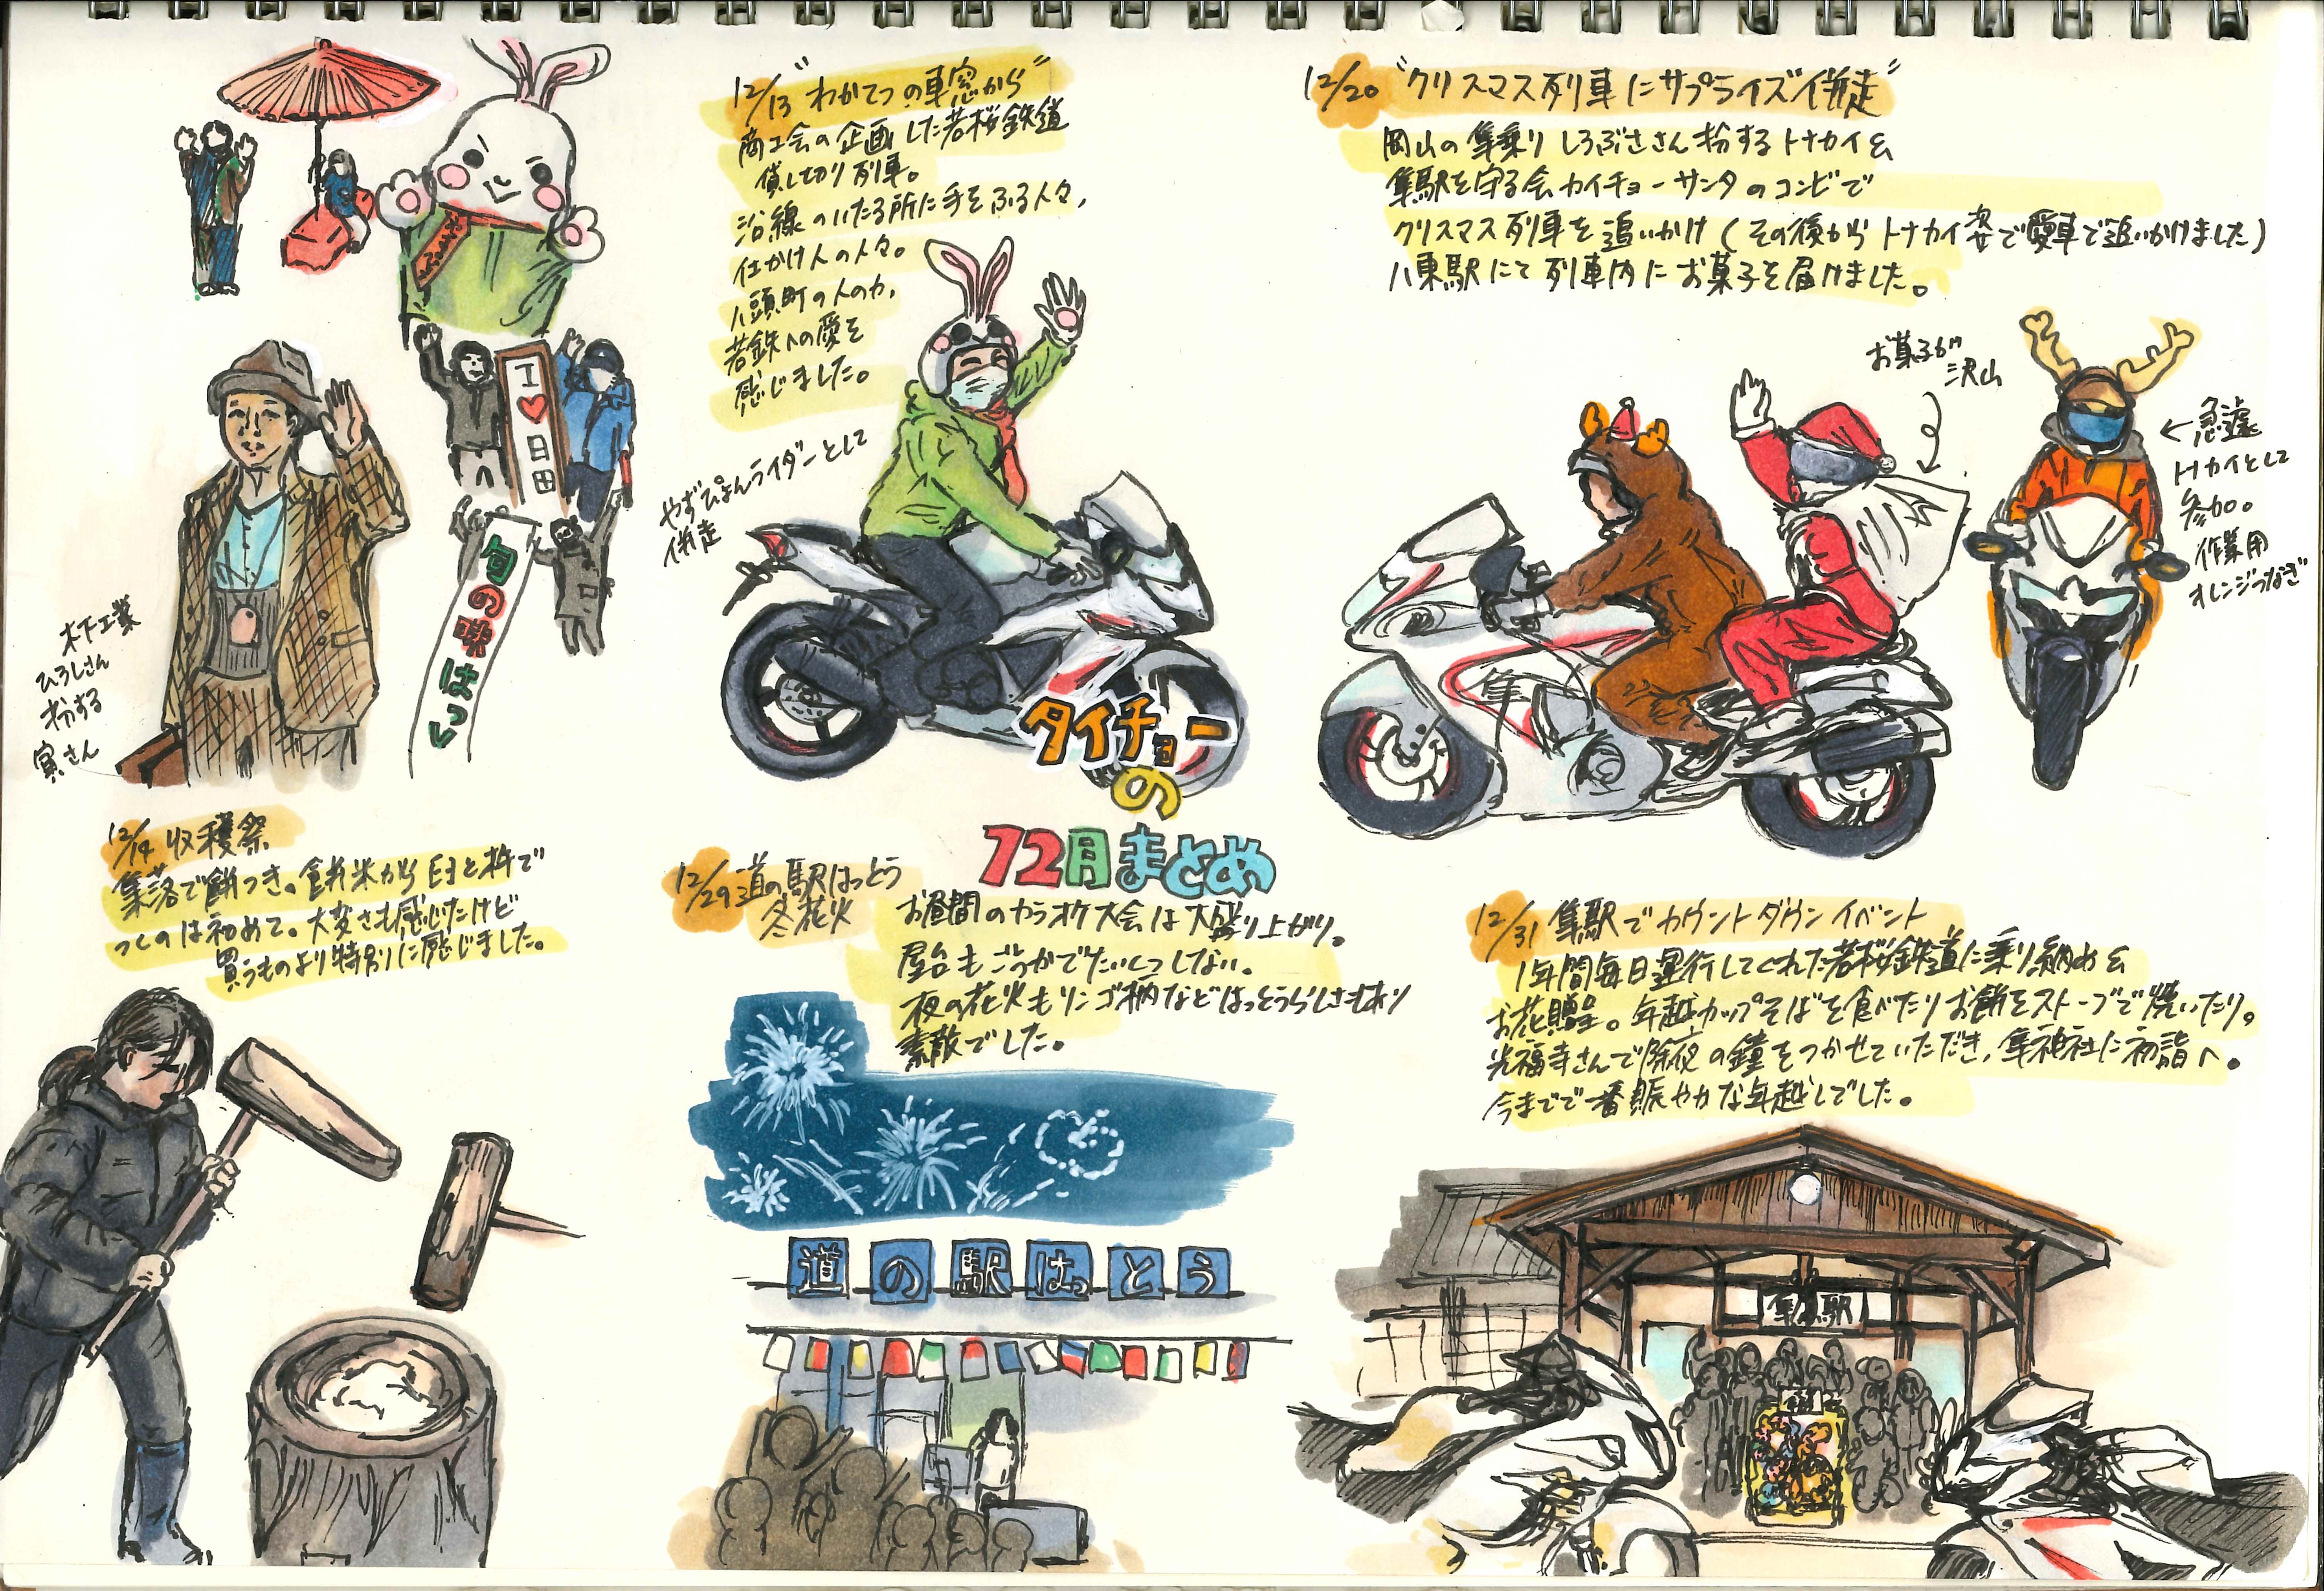 12/13 "わかてつの車窓から"
商工会の企画した若桜鉄道
貸し切り列車。
沿線のいたる所に手をふる人々,
仕かけ人の人々。
八頭町の人の力,
若鉄への愛を
感じました。
やずぴょんライダーとして
併走
I♥日田
旬の味はっし
木下工業
ひろしさん
扮する
寅さん
12/20 "クリスマス列車にサプライズ併走"
岡山の隼乗りしろぶささん扮するトナカイ&
隼駅を守る会カイチョーサンタのコンビで
クリスマス列車を追いかけ(その後からトナカイ姿で愛車で追いかけました)
八東駅にて列車内にお菓子を届けました。
お菓子が
沢山
←急遽
トナカイとして
参加。
作業用
オレンジつなぎ
隼
タイチョー
の
12月まとめ
12/14 収穫祭
集落で餅つき。餅米から臼と杵で
つくのは初めて。大変さも感じたけど
買うものより特別に感じました。
12/29 道の駅はっとう
冬花火
お昼間のカラオケ大会は大盛り上がり。
屋台もごうかでたいくつしない。
夜の花火もリンゴ柄などはっとうらしさもあり
素敵でした。
道の駅はっとう
12/31 隼駅でカウントダウンイベント
1年間毎日運行してくれた若桜鉄道に乗り納め&
お花贈呈。年越カップそばを食べたりお餅をストーブで焼いたり。
光福寺さんで除夜の鐘をつかせていただき,隼神社に初詣へ。
今までで一番賑やかな年越しでした。
隼駅